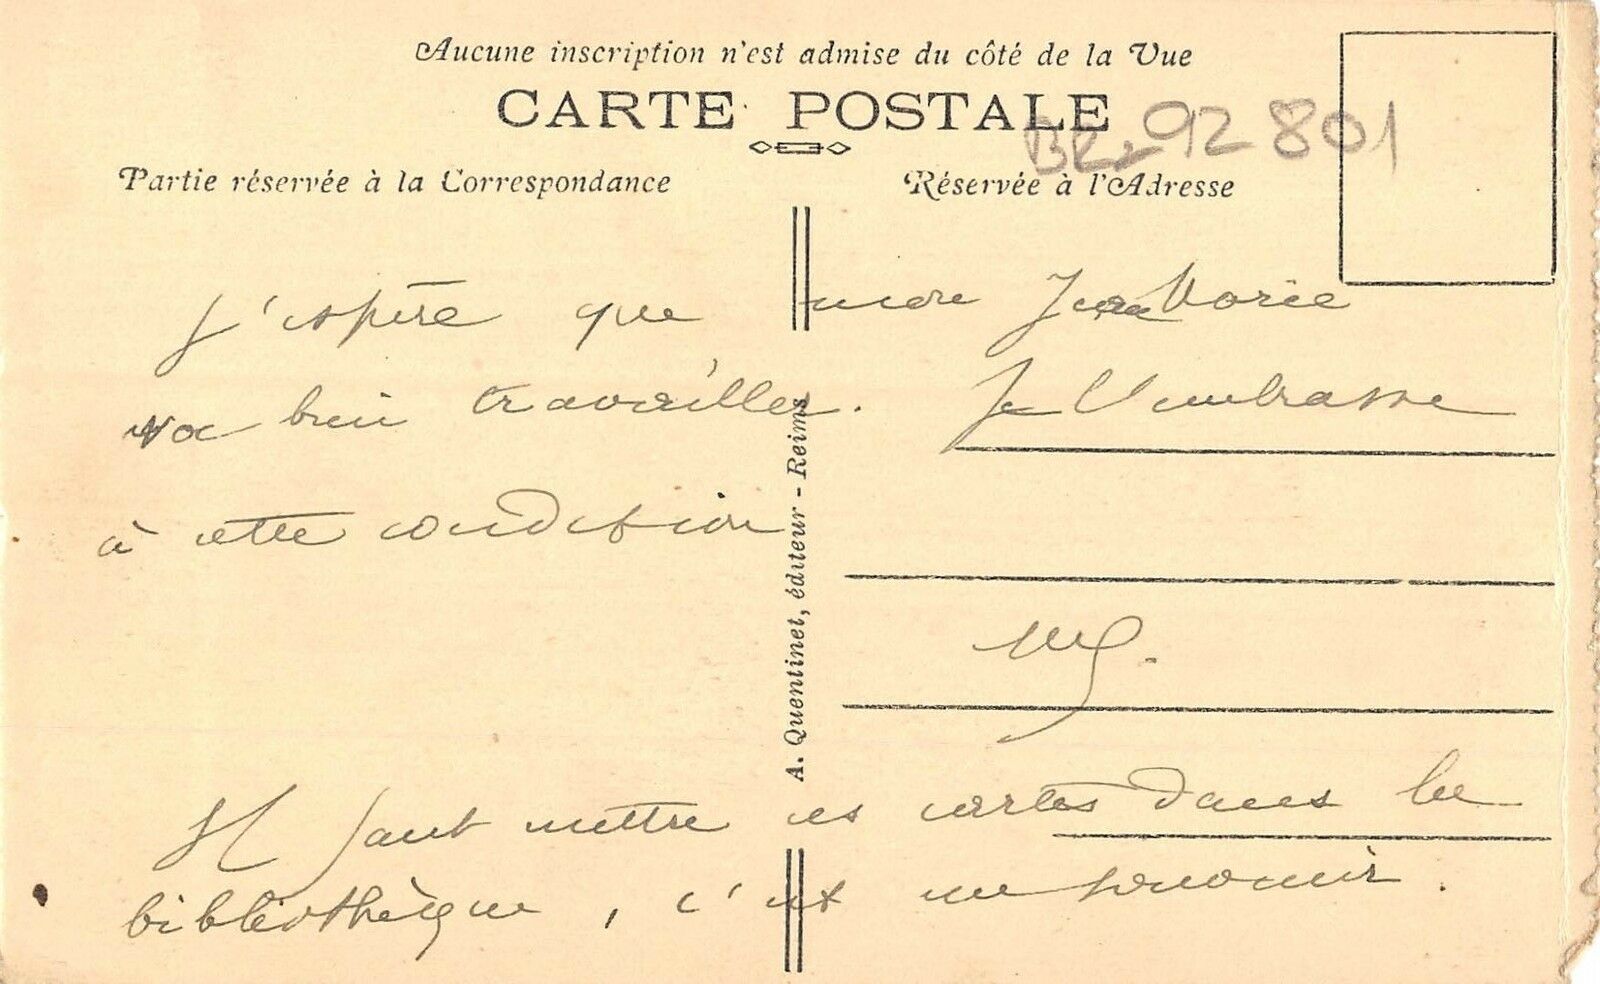 Aucune inscription n'est admise du côté de la Vue
CARTE POSTALE
92801
Partie réservée à la Correspondance
Réservée à l'Adresse
J'espère que mon
va bien travailler. Je l'embrasse
à cette condition
A. Quentinet, éditeur - Reims
Il faut mettre ces cartes dans la
bibliothèque, c'est un souvenir.